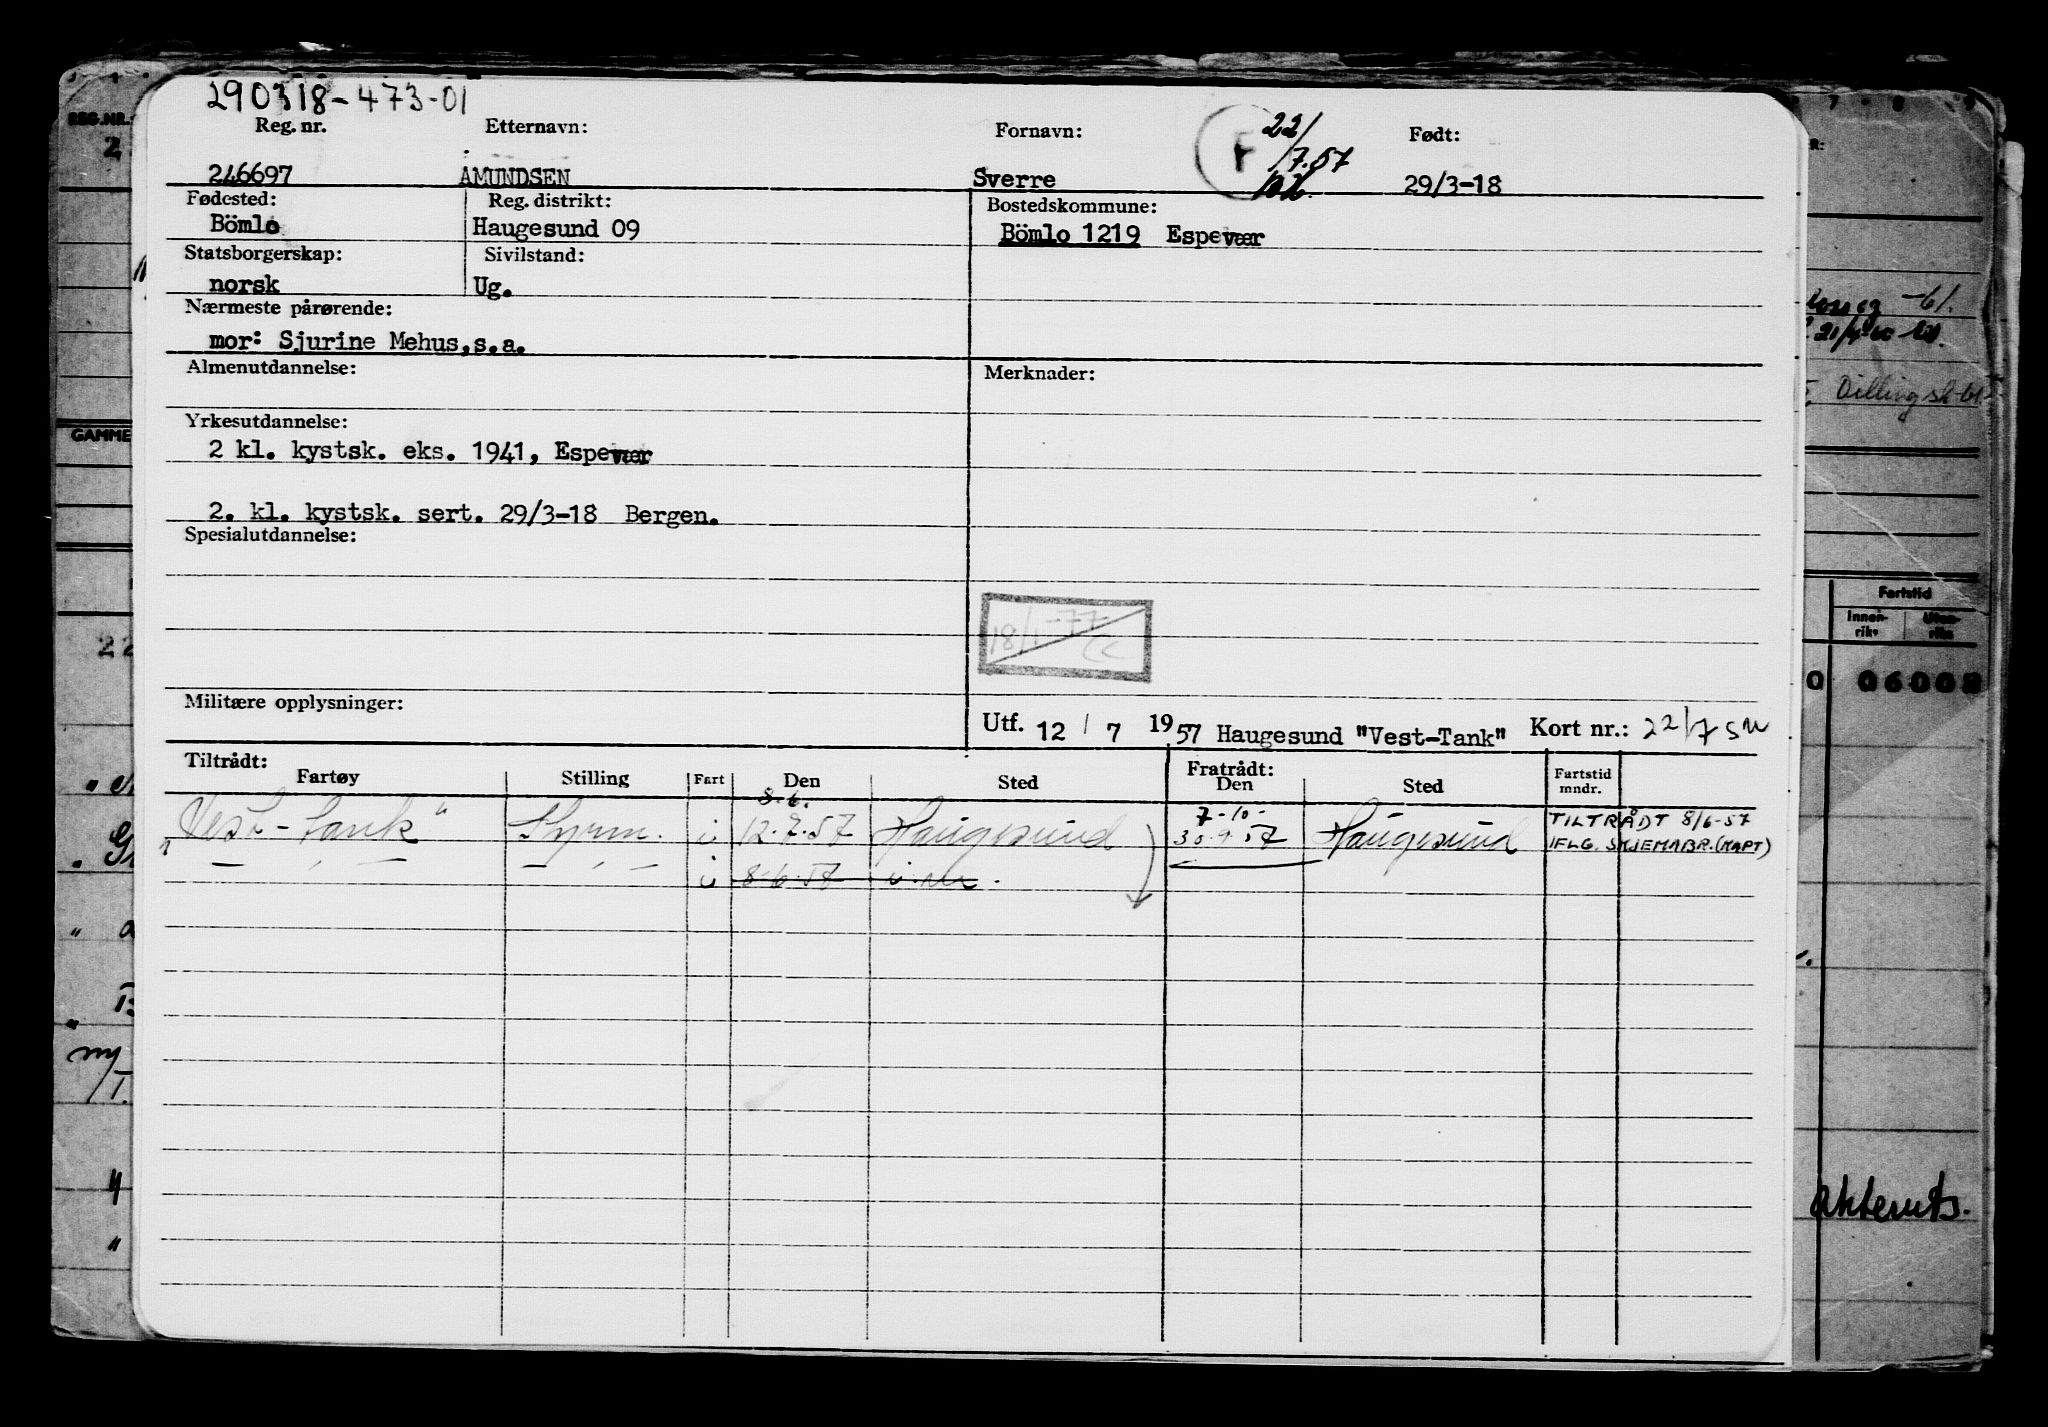 290318-473-01
Reg. nr. Etternavn: Fornavn: F 22/7.57 Født:
246697 AMUNDSEN Sverre 29/3-18
Fødested: Reg. distrikt: Bostedskommune:
Bömlo Haugesund 09 Bömlo 1219 Espevær
Statsborgerskap: Sivilstand:
norsk Ug.
Nærmeste pårørende:
mor: Sjurine Mehus,s.a.
Almenutdannelse: Merknader:
Yrkesutdannelse:
2 kl. kystsk. eks. 1941, Espevær
2. kl. kystsk. sert. 29/3-18 Bergen.
Spesialutdannelse:
18/1-77
Militære opplysninger:
Utf. 12 / 7 1957 Haugesund "Vest-Tank" Kort nr.: 22/7 SM
Tiltrådt: Fratrådt:
Fartøy Stilling Fart Den Sted Den Sted Fartstid mndr.
8.6. 7-10-
"Vest-tank" Styrm. i 12.7.57 Haugesund 30.9.57 Haugesund TILTRÅDT 8/6-57
IFLG. SKJEMABR.(KAPT)
— " — — " — i 8.6.57
REG.NR.
2
GAMME
22
ny
/T.
7 8 9
-61.
21/4
Dillingsk
Fartstid
Innen-
riks
Uten-
riks
0 06008
akteruts.